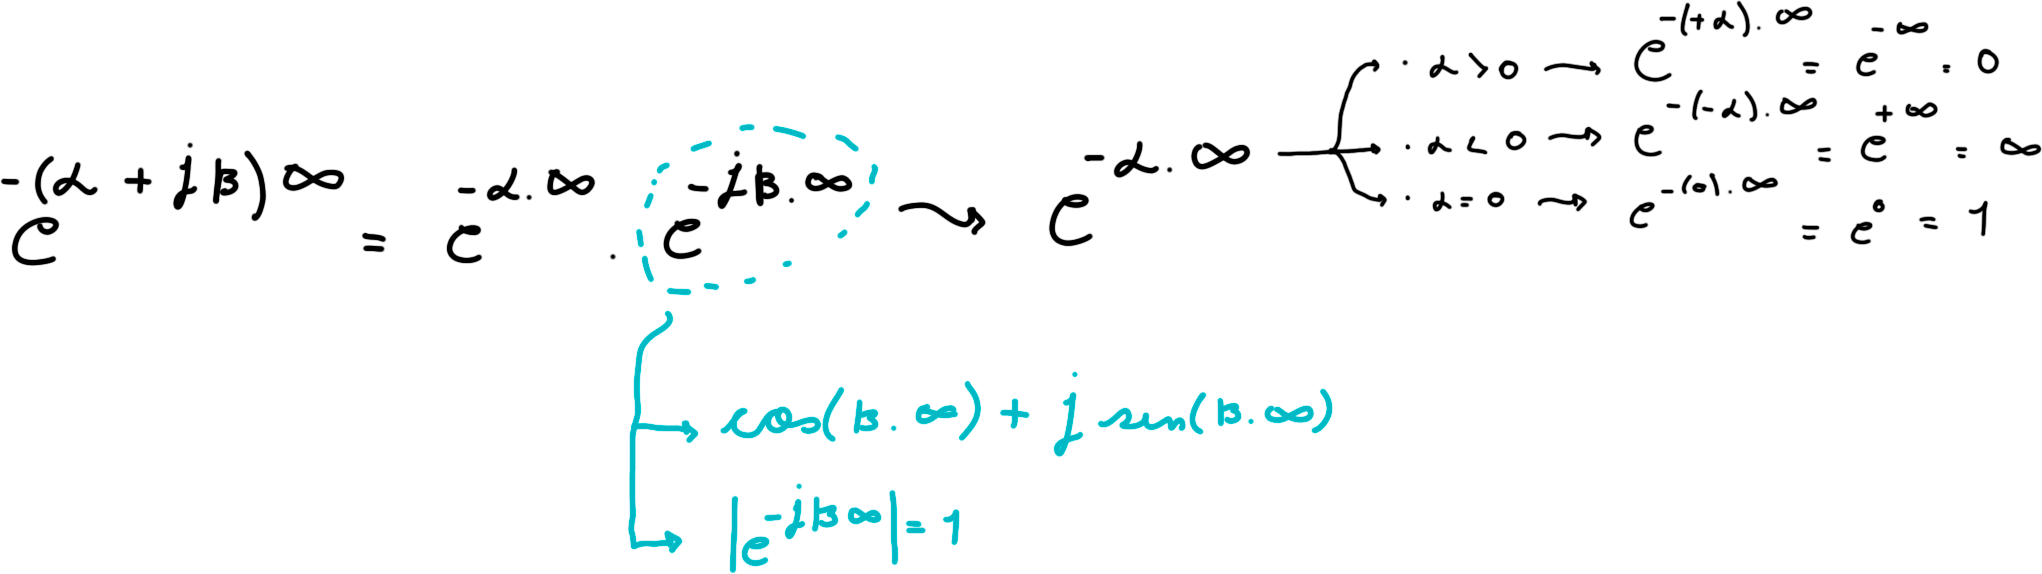 e^{-(α + jβ)∞} = e^{-α.∞} . e^{-jβ.∞} → e^{-α.∞}
· α > 0 → e^{-(+α).∞} = e^{-∞} = 0
· α < 0 → e^{-(-α).∞} = e^{+∞} = ∞
· α = 0 → e^{-(0).∞} = e^0 = 1
→ cos(β.∞) + j sen(β.∞)
→ |e^{-jβ∞}| = 1